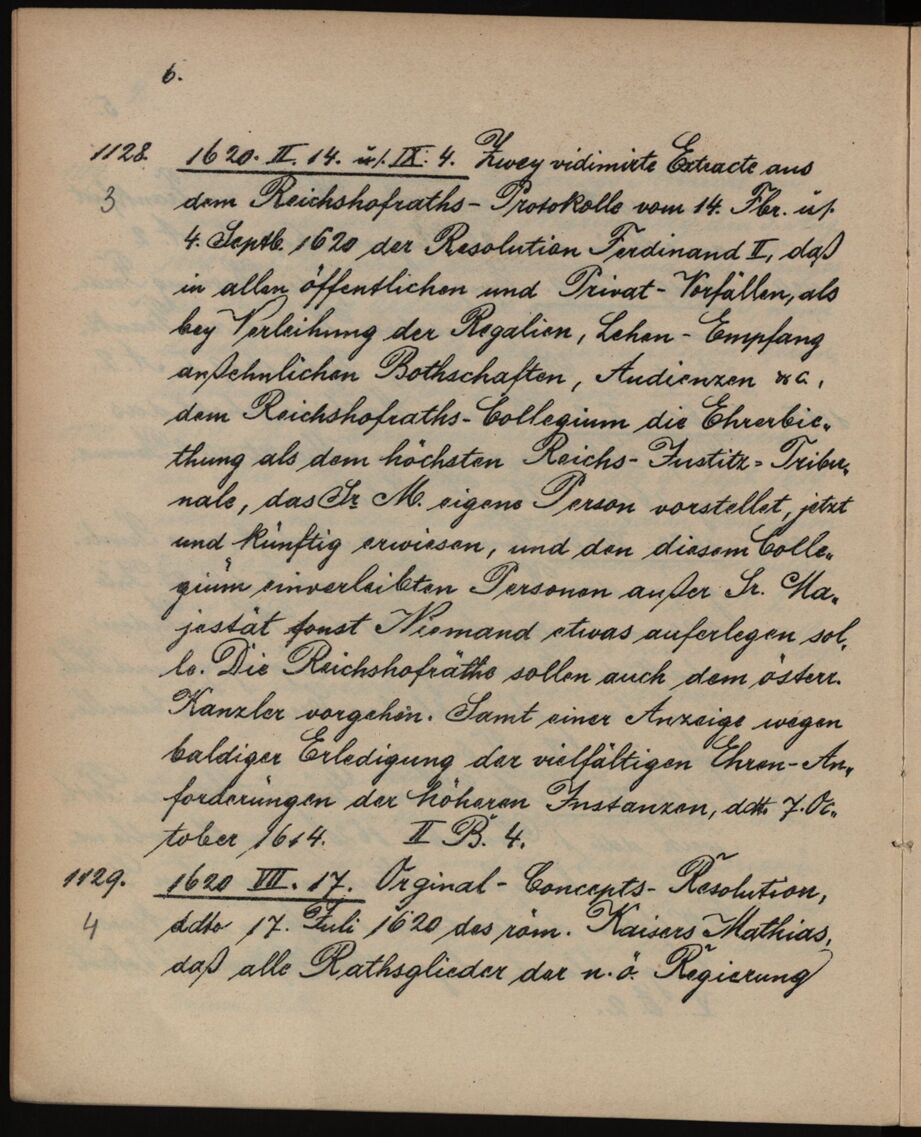 6.
1128. 1620. II. 14. u/. IX. 4. Zwey vidimirte Extracte aus
3 dem Reichshofraths-Protokolle vom 14. Fbr. u/.
4. Septb. 1620 der Resolution Ferdinand II, daß
in allen öffentlichen und Privat-Vorfällen, als
bey Verleihung der Regalien, Lehen-Empfang
anßehnlichen Bothschaften, Audienzen &c.,
dem Reichshofraths-Collegium die Ehrerbie„
thung als dem höchsten Reichs-Justitz=Tribu„
nale, das Sr M. eigene Person vorstellet, jetzt
und künftig erwiesen, und den diesem Colle„
gium einverleibten Personen außer Sr. Ma„
jestät sonst Niemand etwas auferlegen sol„
le. Die Reichshofräthe sollen auch dem österr.
Kanzler vorgehen. Samt einer Anzeige wegen
baldiger Erledigung der vielfältigen Ehren-An„
forderungen der höheren Instanzen, ddto 7. Oc„
tober 1614. II B. 4.
1129. 1620 VII. 17. Orginal-Concepts-Resolution,
4 ddto 17. Juli 1620 des röm. Kaisers Mathias,
daß alle Rathsglieder der n. ö. Regierung